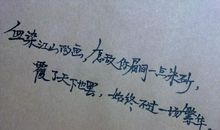 血染江山的画，怎敌你眉间一点朱砂，
覆了天下也罢，始终不过一场繁华